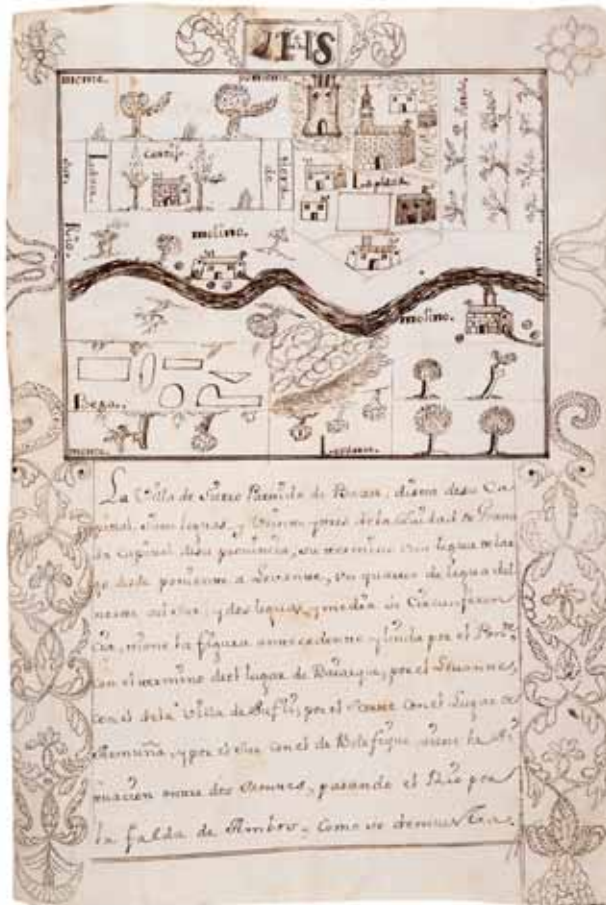 IHS
monte. poniente
Cortijo
La plaza
Rio.
molino.
molino.
Bega.
monte.
La Villa de Sierro Partido de Baza; dista de su Ca
pital leguas, y de la Ciudad de Grana
da Capital de su provincia, su termino una legua de lar
go desde poniente a Levante, un quarto de legua del
norte al sur; y dos leguas, y media de Circunferen
cia, tiene la figura antecedente y linda por el
con el termino del lugar de Bacarque, por el Levante,
con el de la Villa de Suflí, por el Norte con el Lugar de
Armuña, y por el Sur con el de Belefique tiene la Si
tuacion entre dos Serros, pasando el Rio por
la falda de Ambos, Como se demuestra.